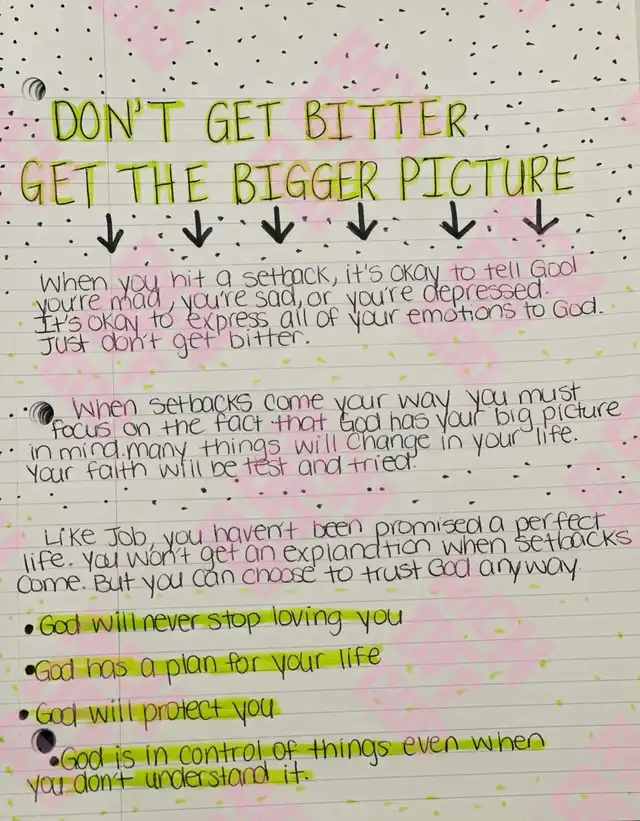 DON'T GET BITTER
GET THE BIGGER PICTURE
When you hit a setback, it's okay to tell God
you're mad, you're sad, or you're depressed.
It's okay to express all of your emotions to God.
Just don't get bitter.
When setbacks come your way you must
focus on the fact that God has your big picture
in mind. many things will change in your life.
Your faith will be test and tried.
Like Job, you haven't been promised a perfect
life. You won't get an explandtion when setbacks
come. But you can choose to trust God anyway.
• God will never stop loving you
• God has a plan for your life
• God will protect you
• God is in control of things even when
you don't understand it.